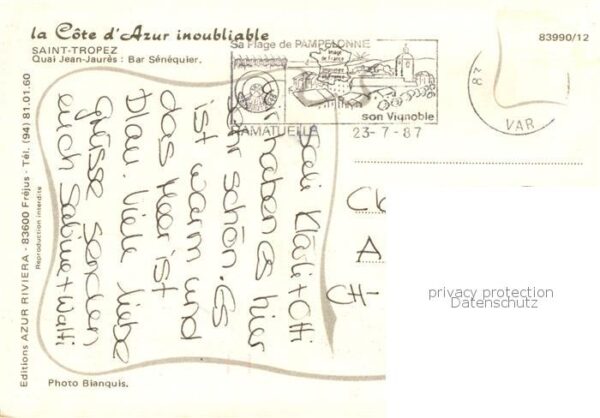 la Côte d'Azur inoubliable
SAINT-TROPEZ
Quai Jean-Jaurès : Bar Sénéquier.
83990/12
Sa Plage de PAMPELONNE
son Vignoble
RAMATUELLE
23-7-87
87
VAR
Sali Kläsli + Otti
wir haben es hier
sehr schön. Es
ist warm und
das Meer ist
blau. Viele liebe
Grüsse senden
euch Sabine + Walti
A
CH-
privacy protection
Datenschutz
Editions AZUR RIVIERA - 83600 Fréjus - Tél. (94) 81.01.60
Reproduction interdite
Photo Bianquis.